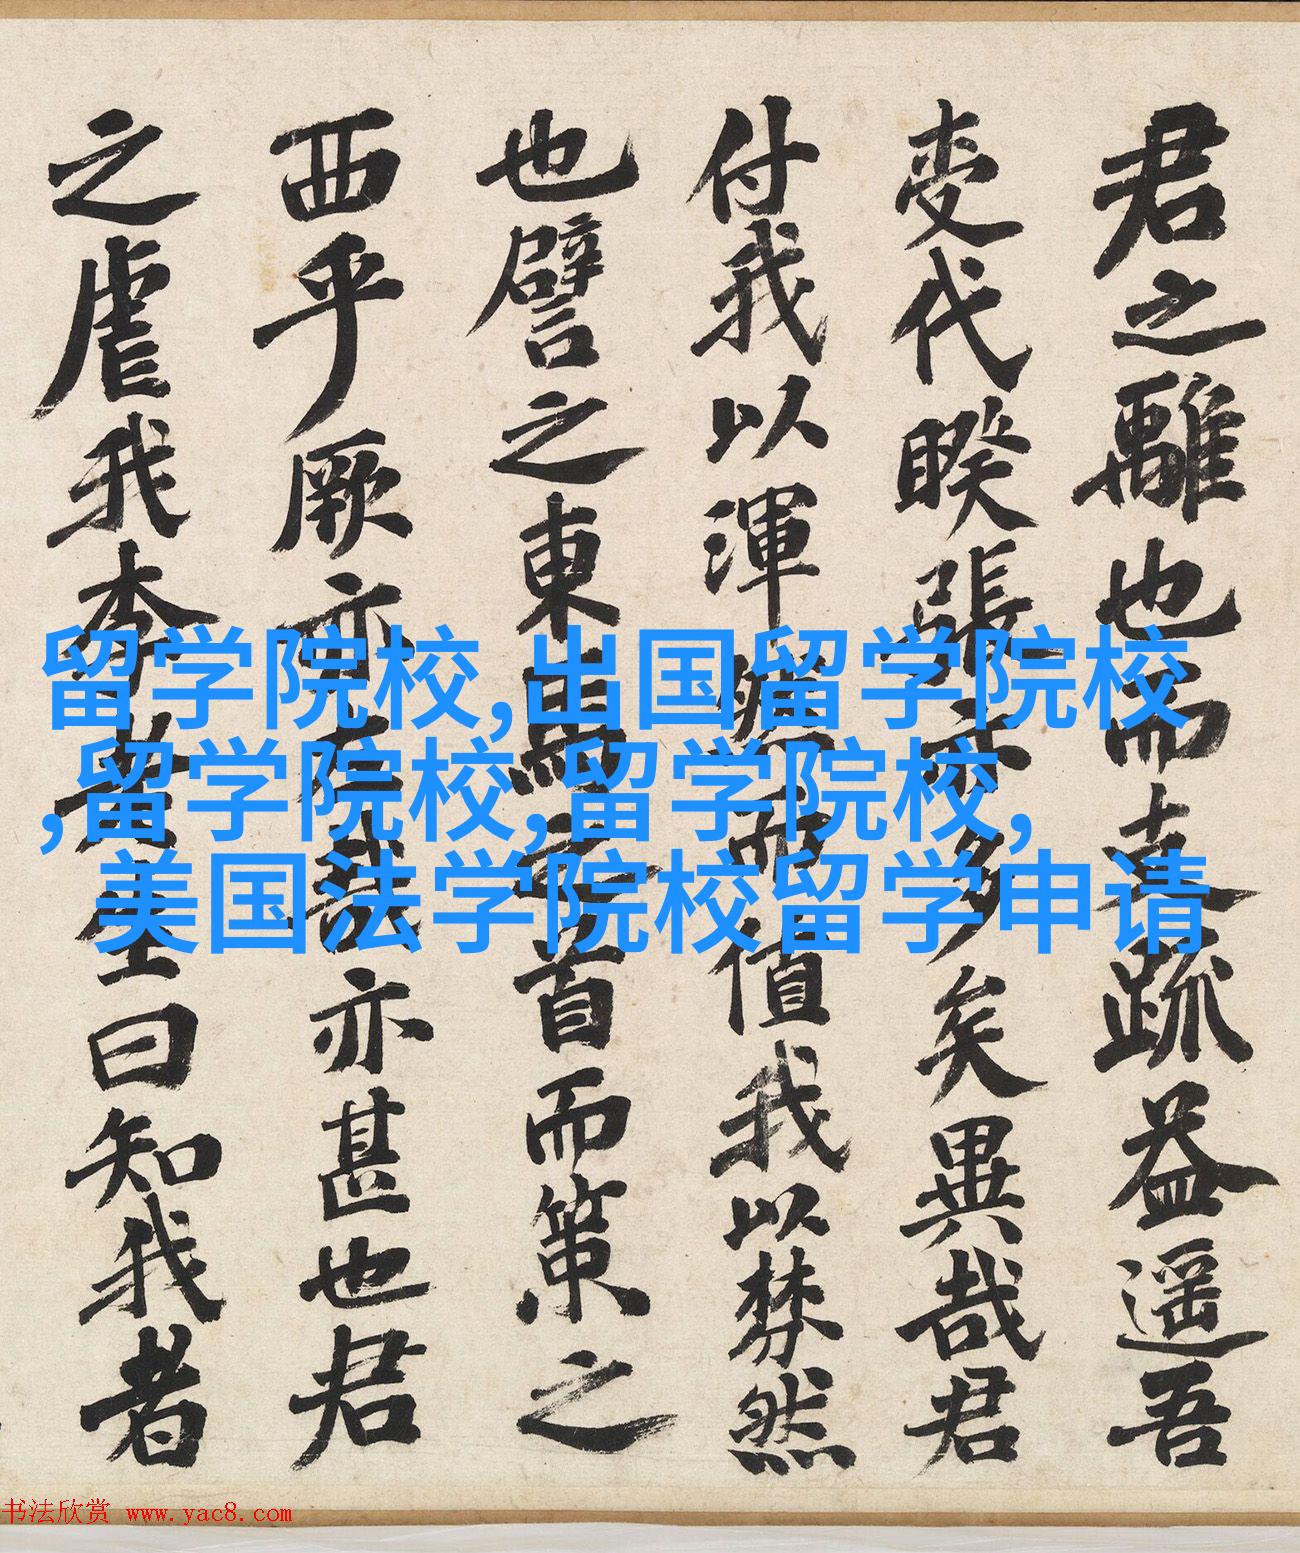 君之離也而走疏益遥吾
受代暌張亦多矣異哉君
付我以渾然而值我以棼然
也譬之東馬之首而策之
西乎厥亦左哉亦甚也君
之虐我李者生曰知我者
留学院校,出国留学院校
,留学院校,留学院校,
美国法学院校留学申请
书法欣赏 www.yac8.com